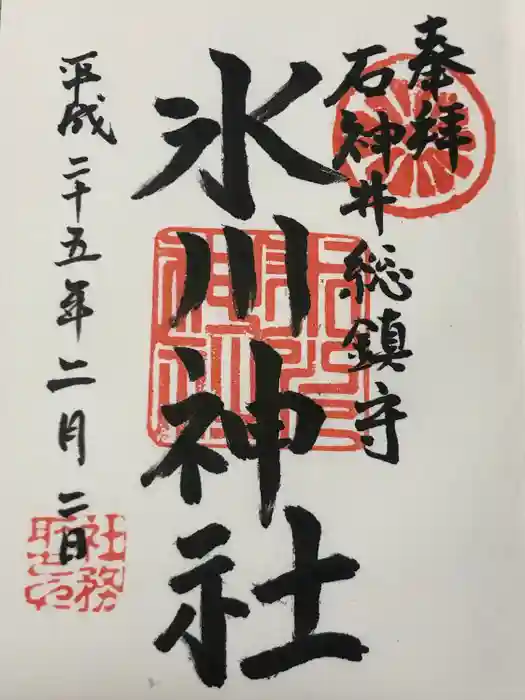 奉拝
石神井総鎮守
氷川神社
平成二十五年二月二日
社務